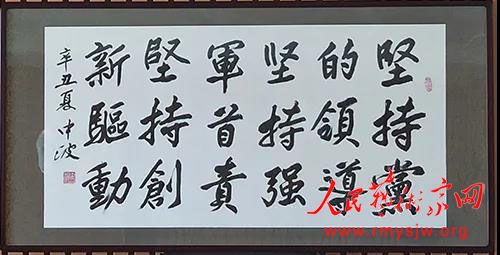 堅持黨
的領導
坚持强
軍首責
堅持創
新驅動
辛丑夏 中波
人民藝術家网
www.rmysjw.org